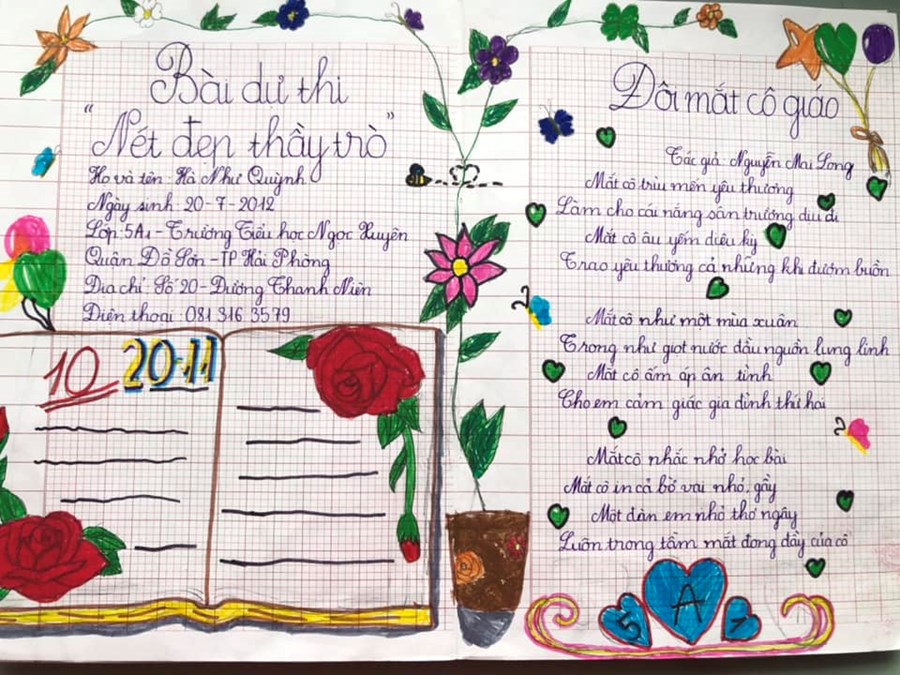 Bài dự thi
"Nét đẹp thầy trò"
Họ và tên: Hà Như Quỳnh
Ngày sinh 20-7-2012
Lớp: 5A1 - Trường Tiểu học Ngọc Xuyên
Quận Đồ Sơn - TP Hải Phòng
Địa chỉ: Số 20 - Đường Thanh Niên
Điện thoại: 081 316 3579
10
20-11
Đôi mắt cô giáo
Tác giả: Nguyễn Mai Long
Mắt cô trìu mến yêu thương
Làm cho cái nắng sân trường dịu đi
Mắt cô âu yếm diệu kỳ
Trao yêu thương cả những khi đượm buồn
Mắt cô như một mùa xuân
Trong như giọt nước đầu nguồn lung linh
Mắt cô ấm áp ân tình
Cho em cảm giác gia đình thứ hai
Mắt cô nhắc nhở học bài
Mắt cô in cả bờ vai nhỏ, gầy
Một đàn em nhỏ thơ ngây
Luôn trong tầm mắt đong đầy của cô
5 A 1